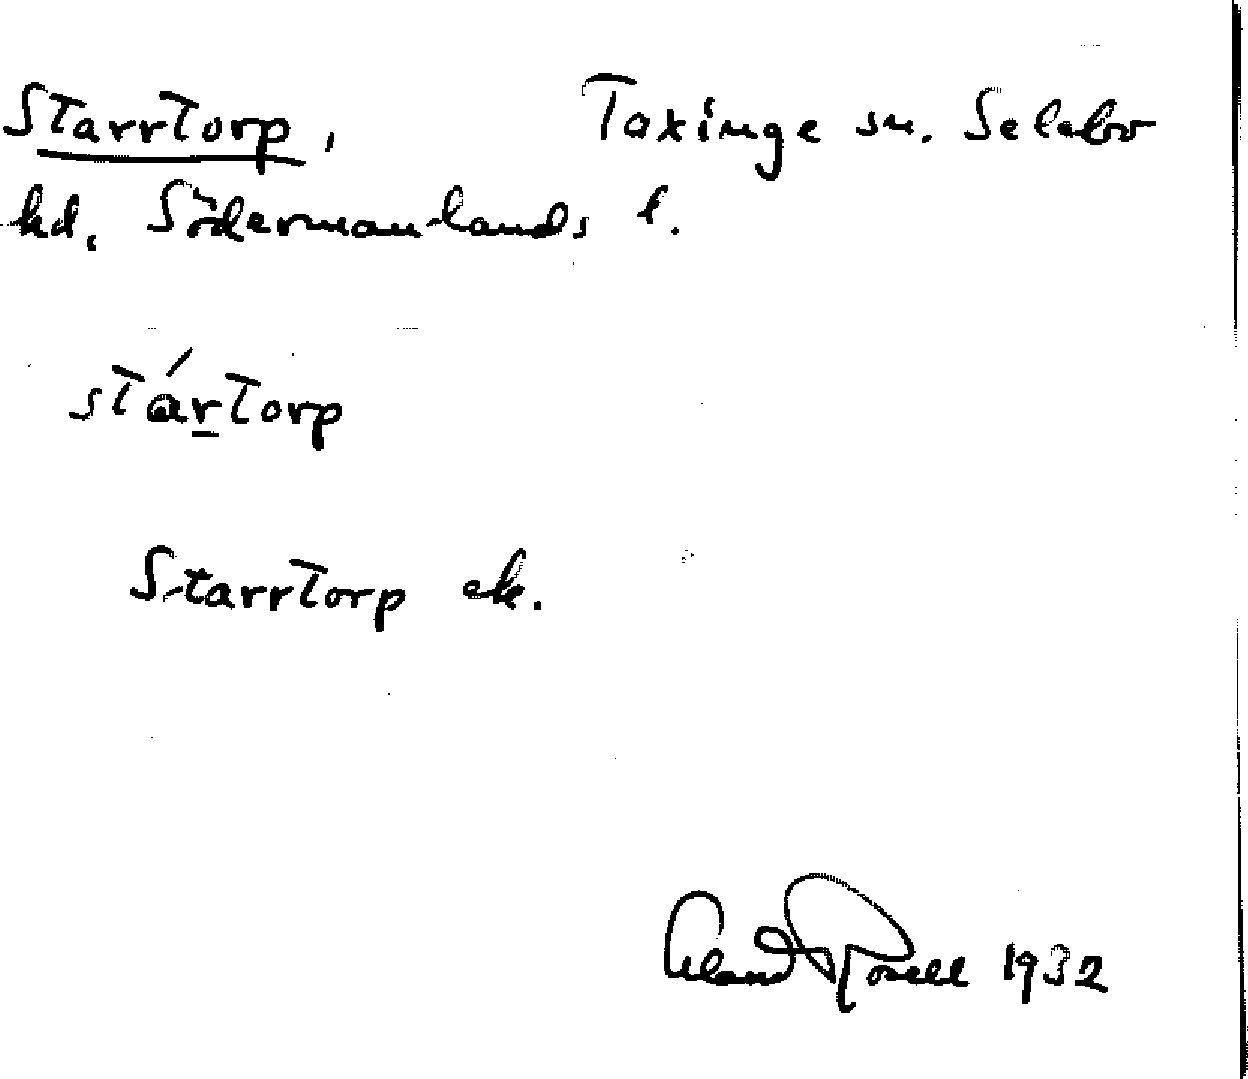 Starrtorp, Taxinge sn. Selebo
hd. Södermanlands l.
stártorp
Starrtorp ek.
1932